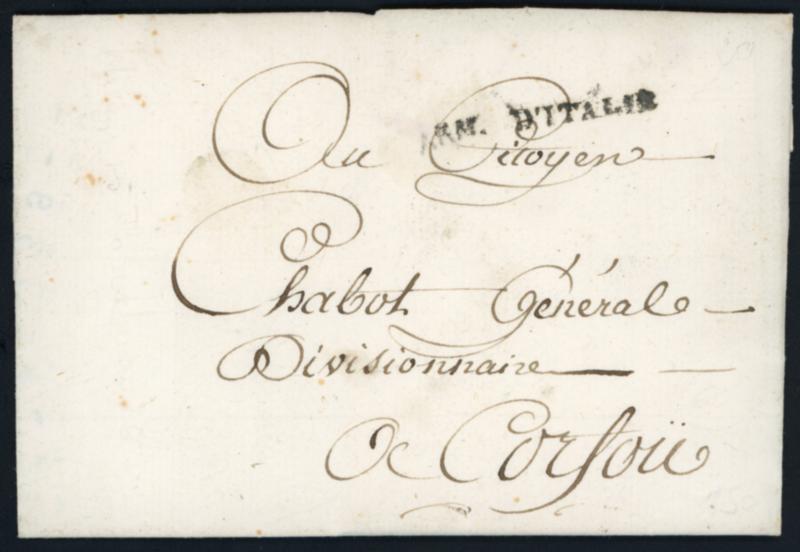 ARM. D'ITALIE
Au Citoyen
Chabot Général
Divisionnaire
A Corfoü